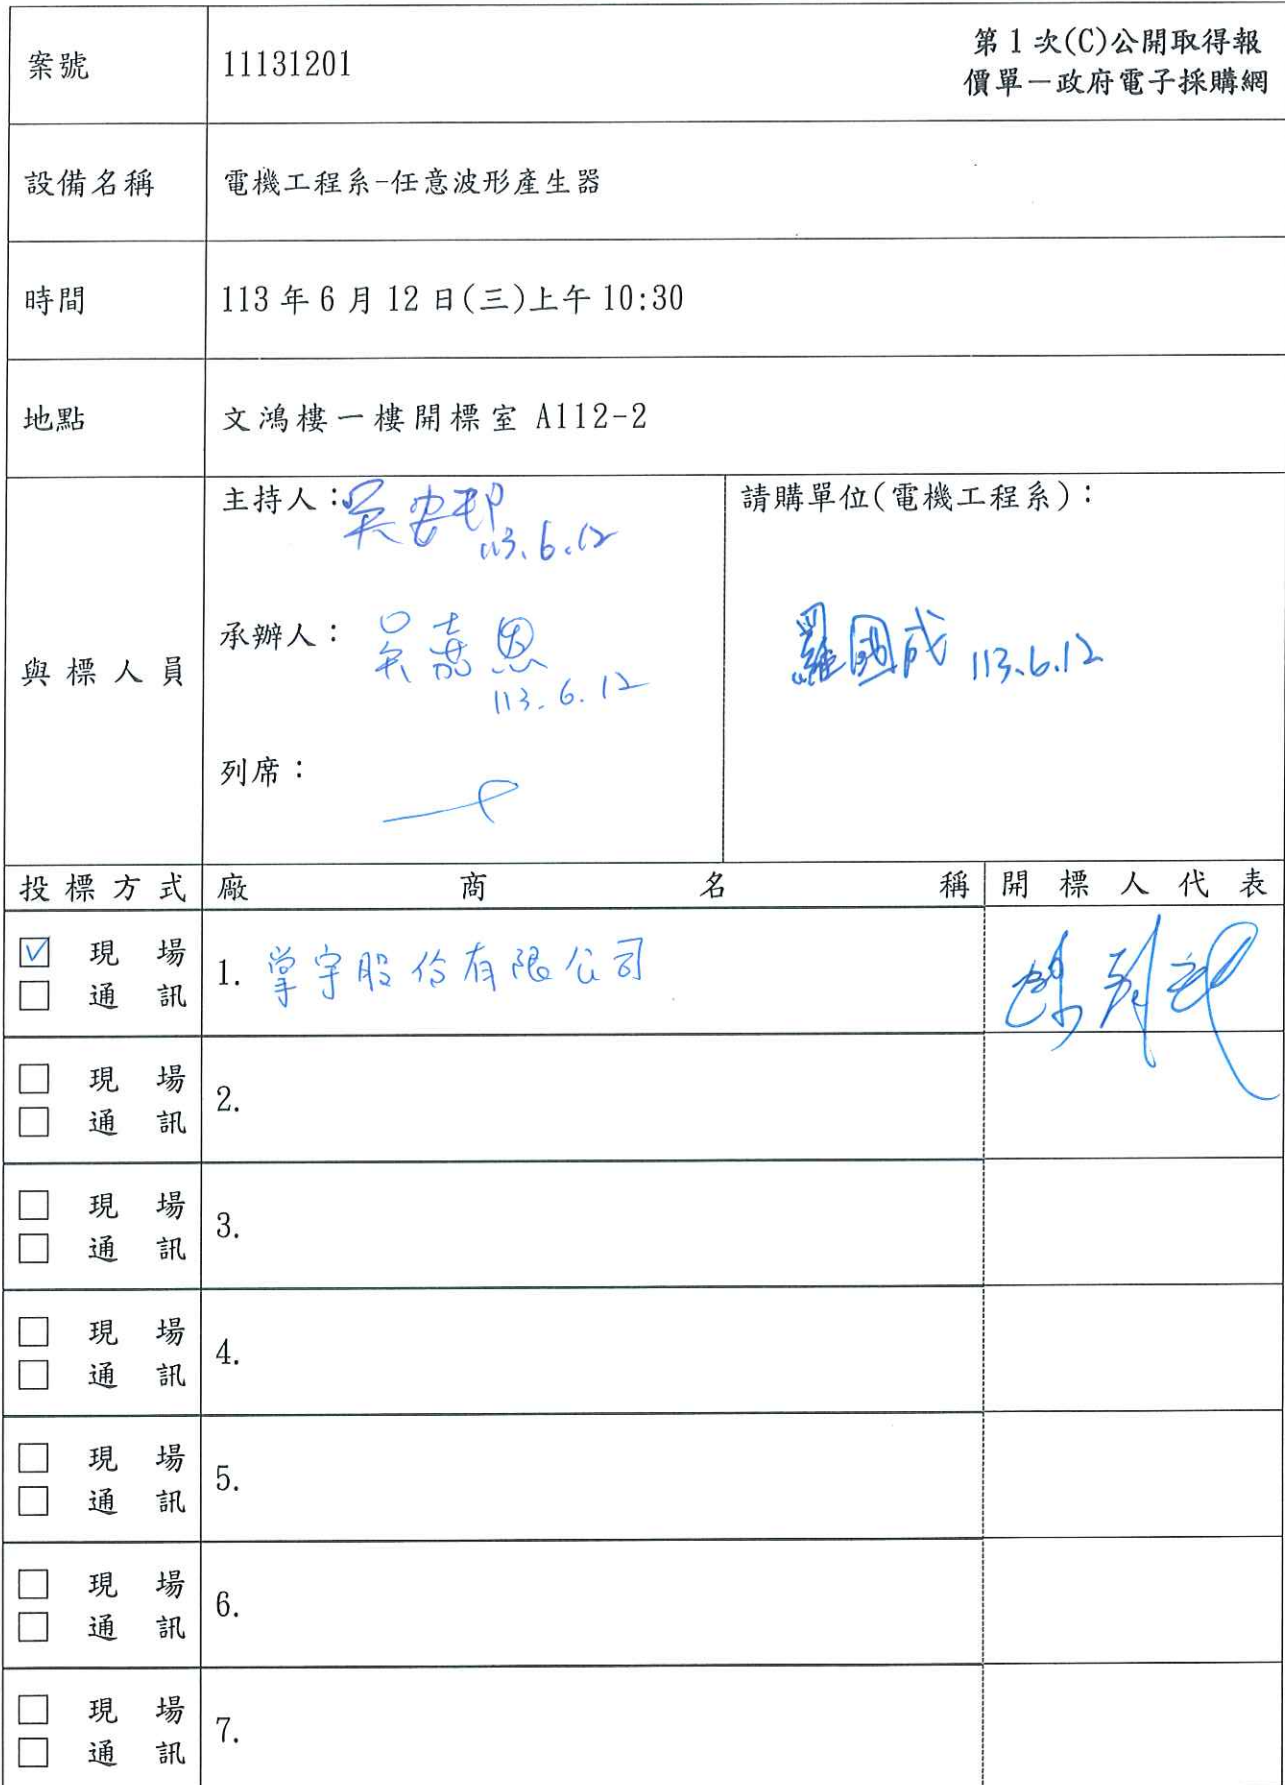 案號 11131201 第 1 次(C)公開取得報
價單－政府電子採購網
設備名稱 電機工程系-任意波形產生器
時間 113 年 6 月 12 日(三)上午 10:30
地點 文鴻樓一樓開標室 A112-2
與標人員
主持人：吳 113.6.12
承辦人：吳嘉恩
113.6.12
列席：
請購單位(電機工程系)：
羅國成 113.6.12
投標方式 廠商名稱 開標人代表
☑ 現場
□ 通訊
1. 掌宇股份有限公司
□ 現場
□ 通訊
2.
□ 現場
□ 通訊
3.
□ 現場
□ 通訊
4.
□ 現場
□ 通訊
5.
□ 現場
□ 通訊
6.
□ 現場
□ 通訊
7.